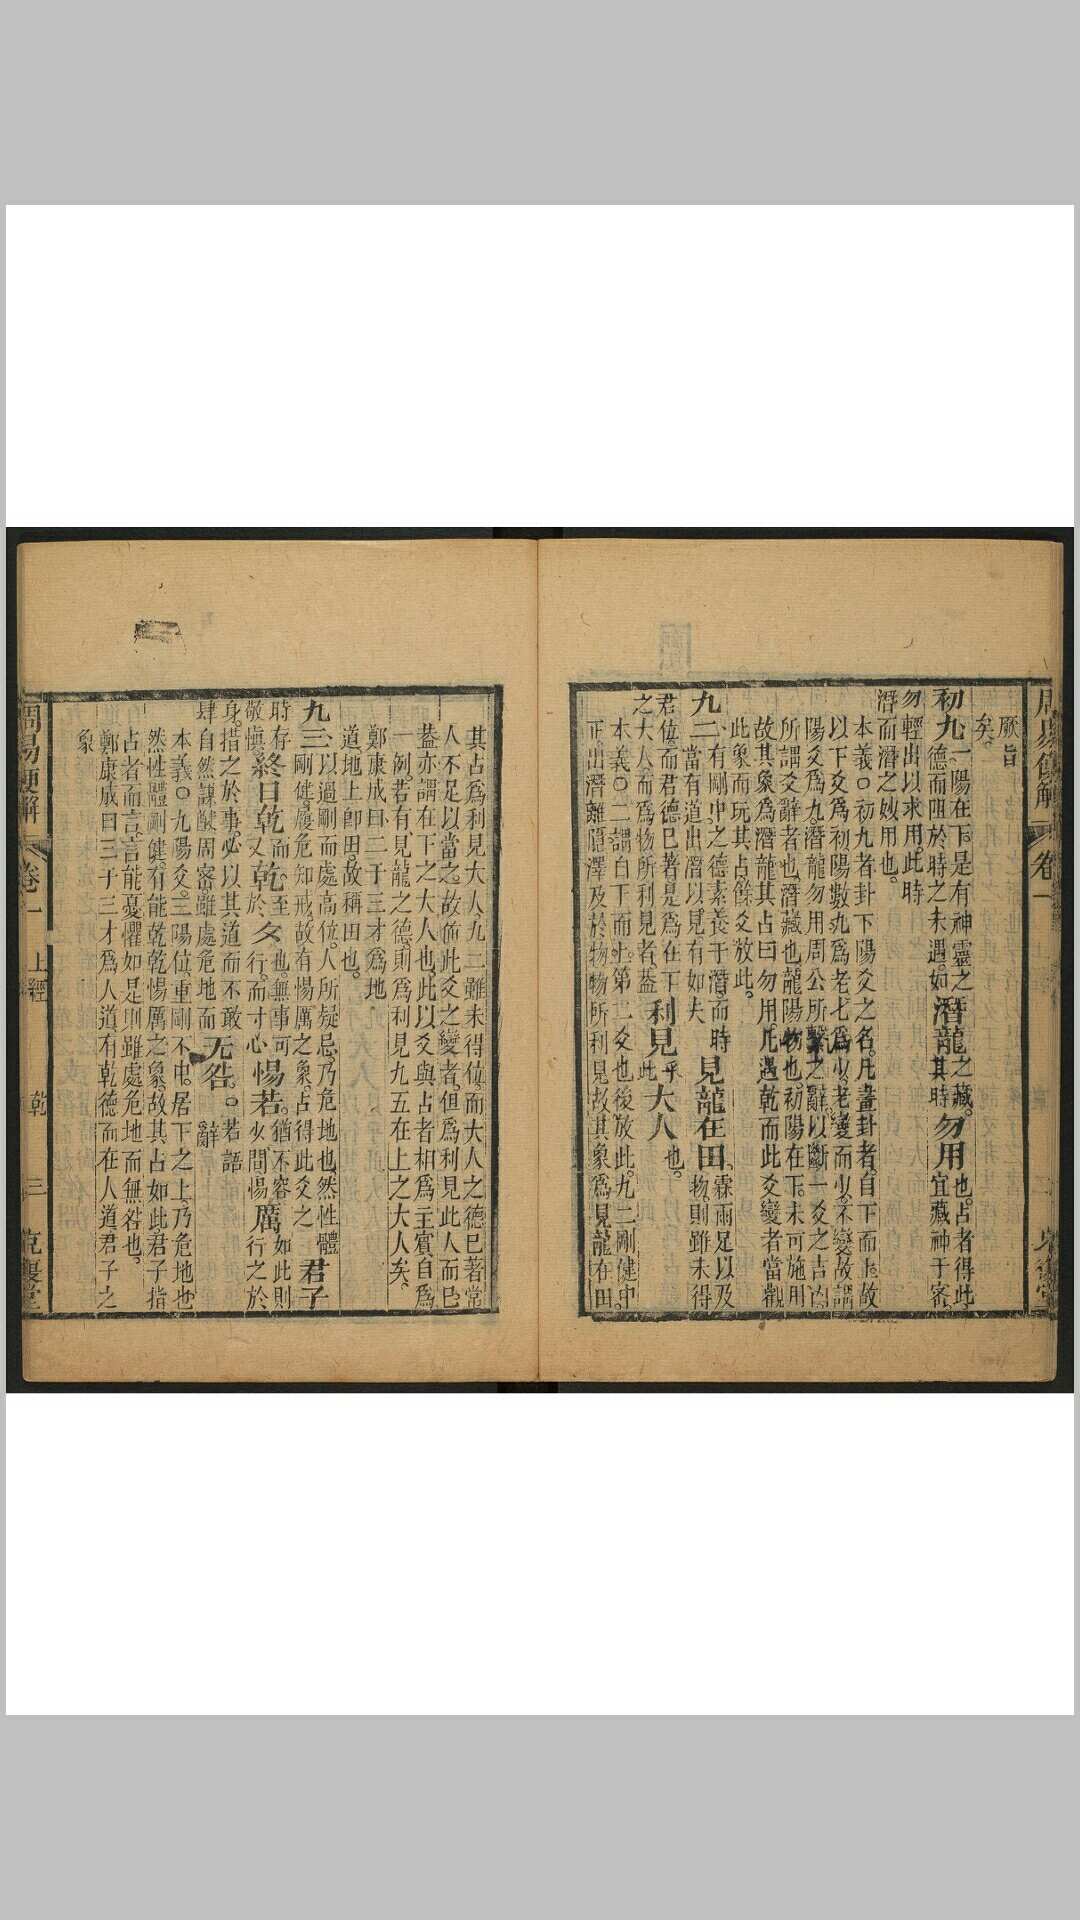 周易便解 卷一
厥旨
矣。
初九、一陽在下。是有神靈之潛龍之藏。勿用也。占者得此
德而阻於時之未遇。如 其時 宜藏神于密、
勿輕出以求用。此時
潛而潛之妙用也。
本義○初九者卦下陽爻之名。凡畫卦者。自下而上。故
以下爻爲初陽數九爲老七爲少。老變而少不變故謂
陽爻爲九。潛龍勿用周公所繫之辭以斷一爻之吉凶。
所謂爻辭者也。潛藏也。龍陽物也。初陽在下。未可施用
故其象爲潛龍其占曰勿用。凡遇乾而此爻變者當觀
此象而玩其占餘爻放此。
九二、有剛中之德素養于潛而時見龍在田、霖雨足以及
當有道出潛以見有如夫 物。則雖未得
君位。而君德已著。是爲在下利見大人也。
之大人而爲物所利見者。蓋 乎此
本義○二謂自下而上。第二爻也後放此。九二剛健中
正出潛離隱。澤及於物。物所利見。故其象爲見龍在田。
其占爲利見大人。九二雖未得位。而大人之德已著。常
人不足以當之。故値此爻之變者。但爲利見此人而已
蓋亦謂在下之大人也。此以爻與占者相爲主賓。自爲
一例。若有見龍之德。則爲利見九五在上之大人矣。
鄭康成曰二于三才爲地
道。地上卽田。故稱田也。
九三、以過剛而處高位。人所疑忌。乃危地也。然性體君子
剛健。履危知戒。故有惕厲之象。占得此爻之
時存終日乾而。至夕也。無事可惕若。猶不容厲如此則
敬愼。 乾。又於 行。而寸心 少間。惕 行之於
身。措之於事。必以其道而不敢无咎。。若語
肆自然謀猷周密。雖處危地而 辭
本義○九陽爻。三陽位。重剛不中。居下之上。乃危地也
然性體剛健。有能乾乾惕厲之象。故其占如此。君子指
占者而言。言能憂懼如是。則雖處危地而無咎也。
鄭康成曰三于三才爲人道。有乾德而在人道。君子之
象
周易便解 卷一 上經 乾 三